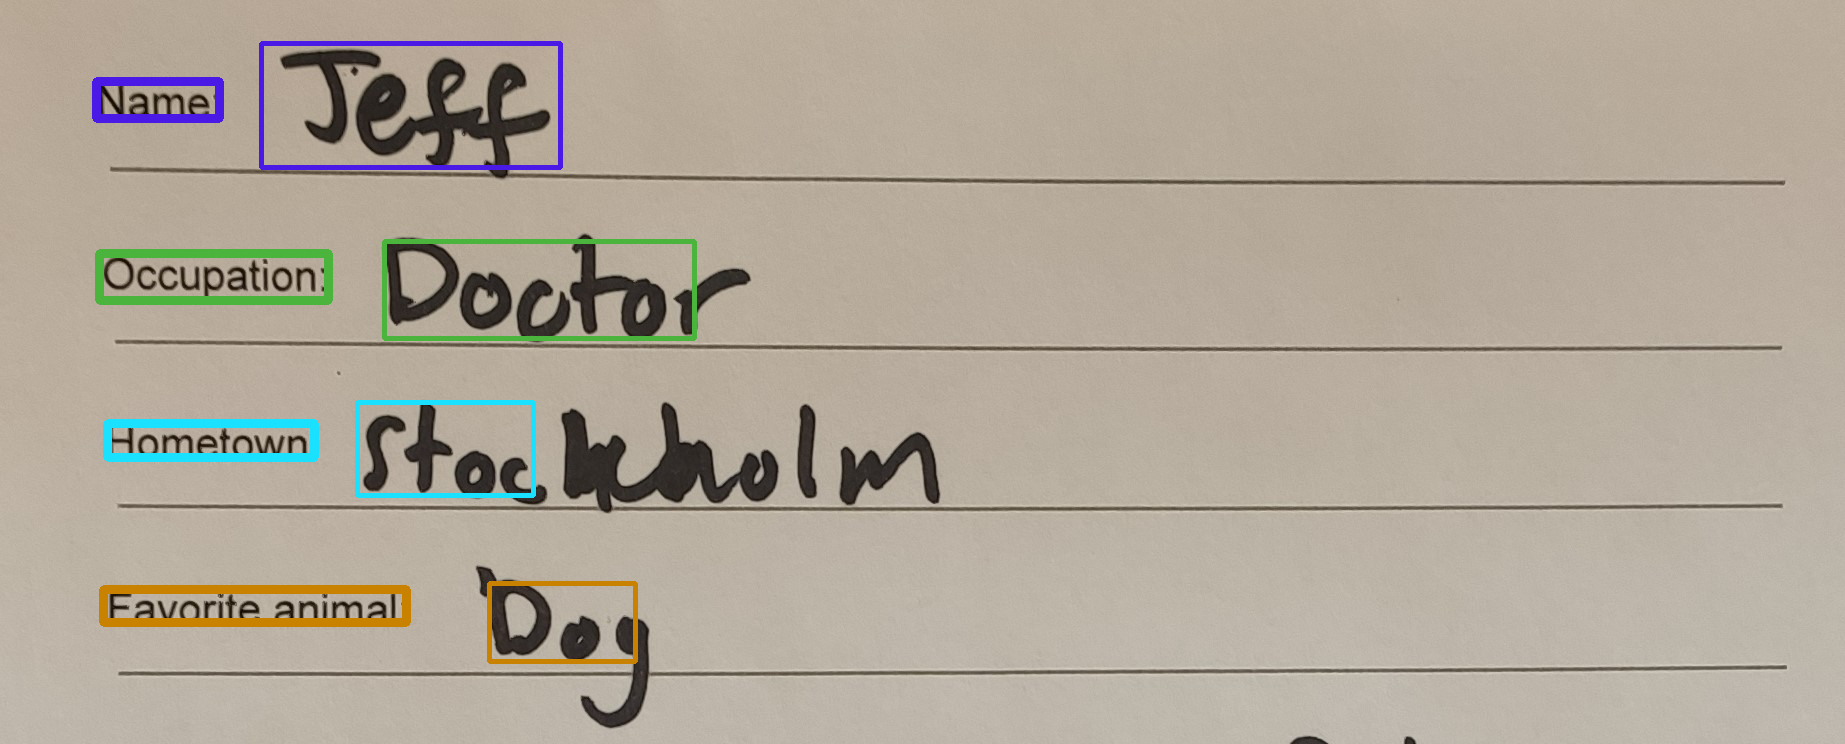 Name: Jeff
Occupation: Doctor
Hometown Stockholm
Favorite animal: Dog